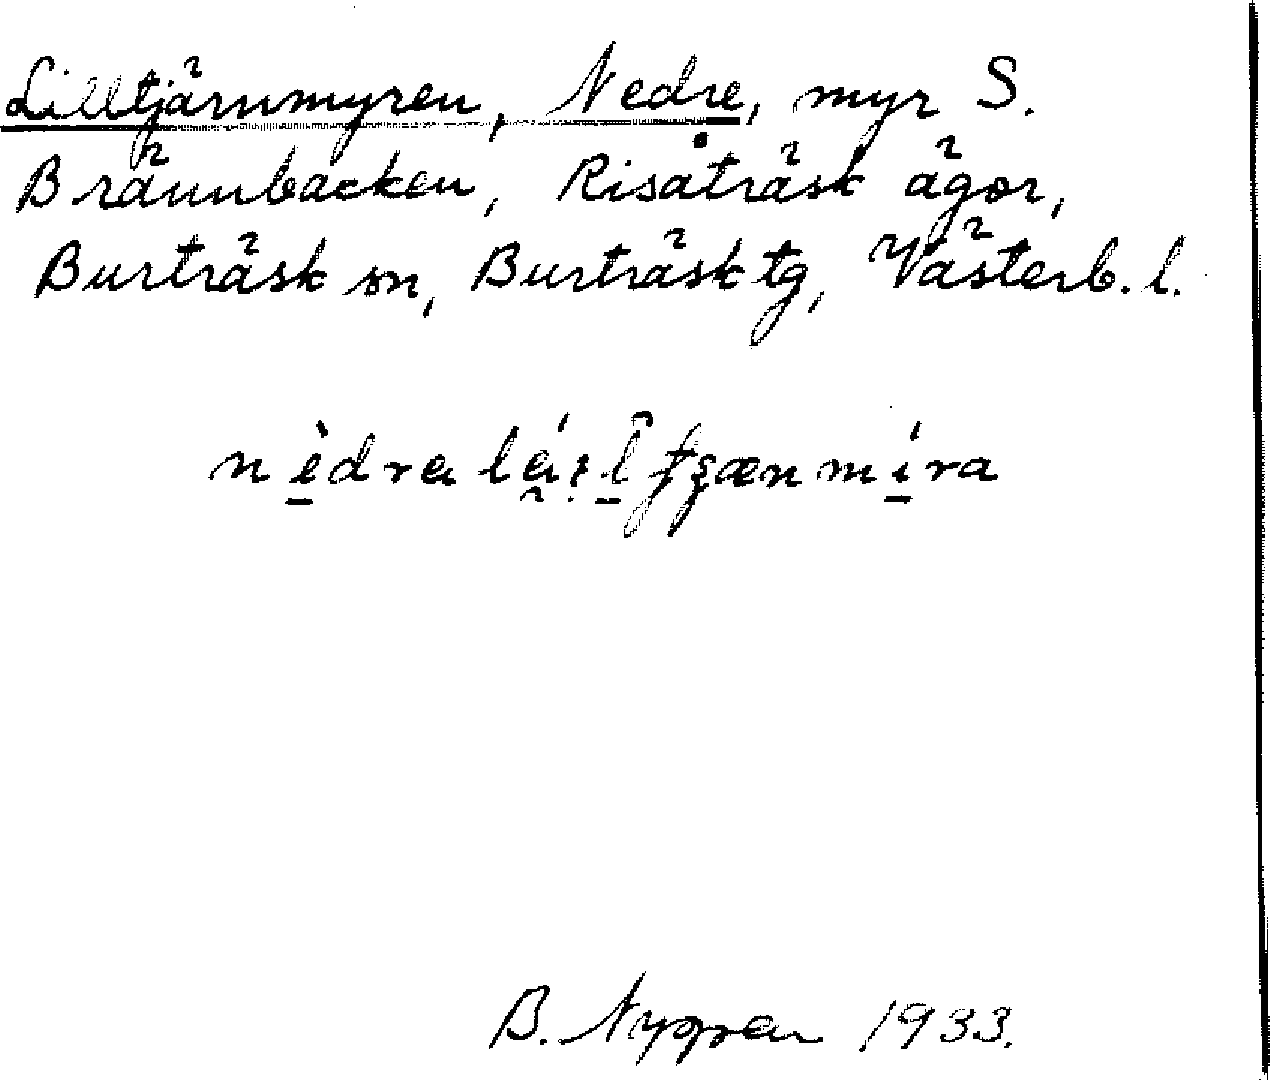 Lilltjärnmyren, Nedre, myr S.
Brännbacken, Risåträsk ägor,
Burträsk sn, Burträsk tg, Västerb. l.
B. Nygren 1933.